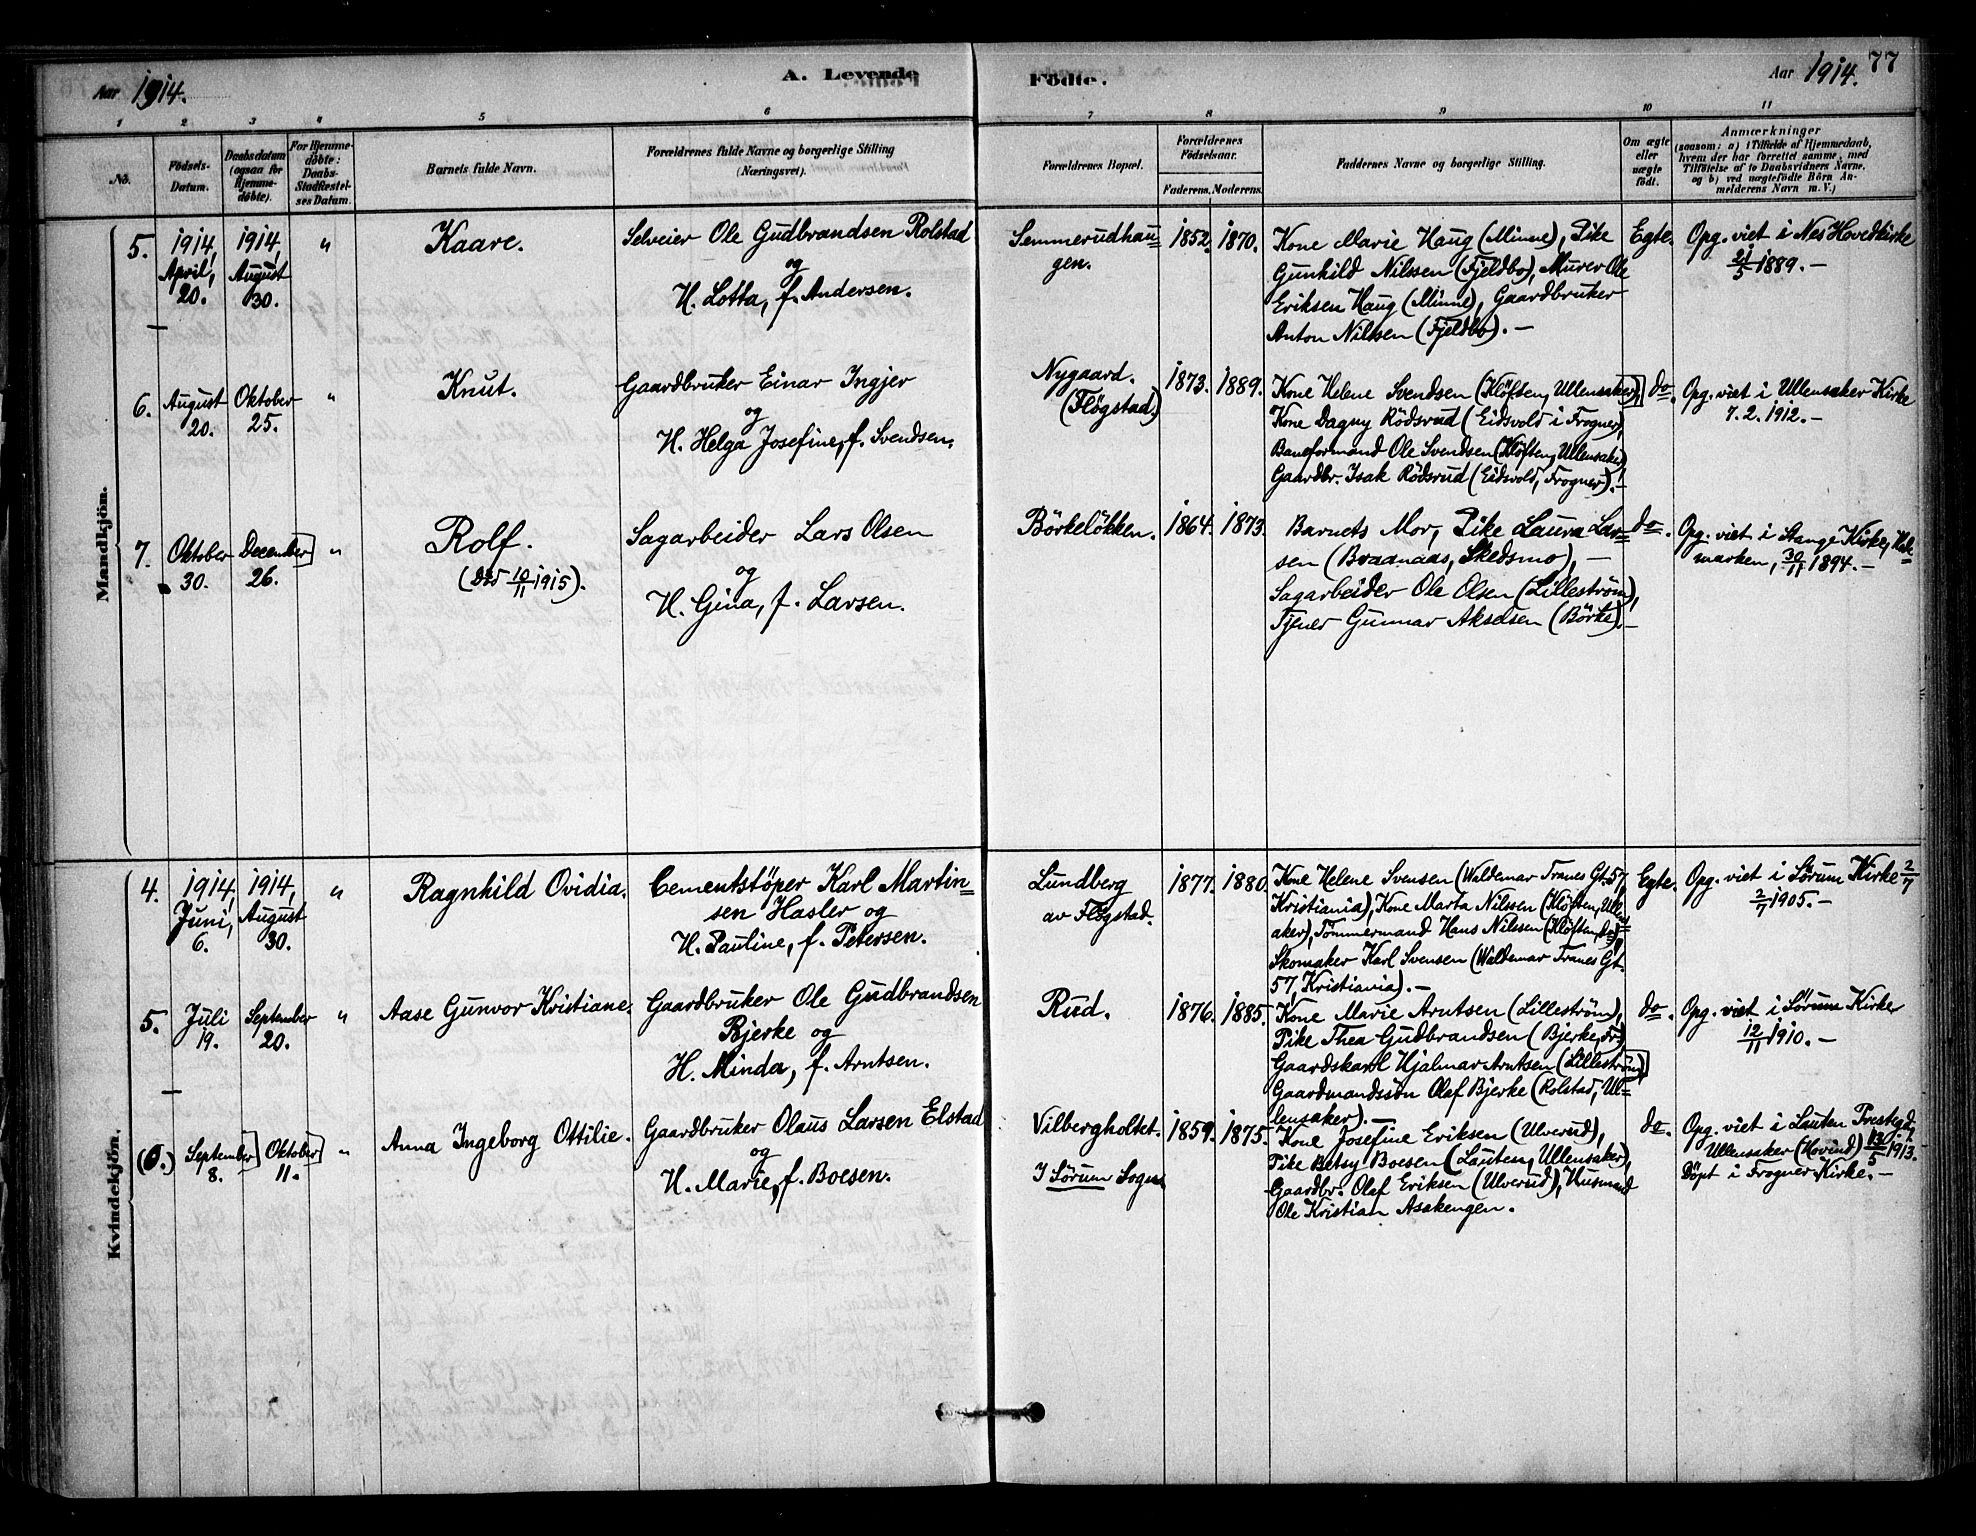 Aar 1914.
A. Levende
Födte.
Aar 1914.
77
1 2 3 4 5 6 7 8 9 10 11
No.
Födsels-
Datum.
Daabsdatum
(ogsaa for
Hjemme-
døbte).
For Hjemme-
døbte:
Daabs-
Stadfæstel-
ses Datum.
Barnets fulde Navn.
Forældrenes fulde Navne og borgerlige Stilling
(Næringsvei).
Forældrenes Bopæl.
Forældrenes
Födselsaar.
Faderens. Moderens.
Faddernes Navne og borgerlige Stilling.
Om ægte
eller
uægte
født.
Anmærkninger
(saasom: a) i Tilfælde af Hjemmedaab,
hvem der har forrettet samme, med
Tilføielse af to Daabsvidners Navne,
og b) ved uægtefødte Börn An-
melderens Navn m. V.)
Mandkjön.
5.
1914,
April,
20.
1914,
August
30.
"
Kaare.
Selveier Ole Gudbrandsen Rolstad
og
H. Lotta, f. Andersen.
Semmerudhau-
gen.
1852.
1870.
Kone Marie Haug (Minne), Pike
Gunhild Nilssen (Fjeldbo), Murer Ole
Eriksen Haug (Minne), Gaardbruker
Anton Nilssen (Fjeldbo). —
Egte.
Opg. viet i Nes Hovedkirke
21/5 1889. —
6.
August
20.
Oktober
25.
"
Knut.
Gaardbruker Einar Ingjer
og
H. Helga Josefine, f. Svendsen.
Nygaard.
(Flögstad)
1873.
1889.
Kone Helene Svendsen (Klöften, Ullensaker),
Kone Dagny Rödsrud (Eidsvold i Frogner),
Baneformand Ole Svendsen (Klöften, Ullensaker)
Gaardbr. Isak Rödsrud (Eidsvold, Frogner). —
do.
Opg. viet i Ullensaker Kirke
7. 2. 1912. —
7.
Oktober
30.
December
26.
"
Rolf.
(Död 10/11 1915).
Sagarbeider Lars Olsen
og
H. Gina, f. Larsen.
Börkelökken.
1864.
1873.
Barnets Mor, Pike Laura Lar=
sen (Braanaas, Skedsmo), —
Sagarbeider Ole Olsen (Lilleström),
Tjener Gunnar Akselsen (Börke). —
do.
Opg. viet i Stange Kirke, Hede=
marken, 30/11 1894. —
Kvindekjön.
4.
1914,
Juni,
6.
1914,
August
30.
"
Ragnhild Ovidia.
Cementstöper Karl Martin=
sen Hasler og
H. Pauline, f. Petersen.
Lundberg
av Flögstad.
1877.
1880.
Kone Helene Svensen (Waldemar Tranes Gt. 57,
Kristiania), Kone Marta Nilssen (Klöften, Ullens=
aker), Tömmermand Hans Nilssen (Klöften, do),
Skomaker Karl Svensen (Waldemar Tranes Gt.
57, Kristiania). —
Egte.
Opg. viet i Sörum Kirke 2/7
2/7 1905. —
5.
Juli
19.
September
20.
"
Aase Gunvor Kristiane.
Gaardbruker Ole Gudbrandsen
Bjerke og
H. Minda, f. Arntsen.
Rud.
1876.
1885.
Kone Marie Arntsen (Lilleström),
Pike Thea Gudbrandsen (Bjerke, Fr)
Gaardskarl Hjalmar Arntsen (Lilleström)
Gaardmandssön Olaf Bjerke (Rolstad, Ul=
lensaker). —
do.
Opg. viet i Sörum Kirke
12/11 1910. —
(6.)
September
8.
Oktober
11.
"
Anna Ingeborg Ottilie.
Gaardbruker Olaus Larsen Elstad
og
H. Marie, f. Boesen.
Vilbergholtet.
I Sörum Sogn
1859.
1875.
Kone Josefine Eriksen (Ulverud),
Pike Betsy Boesen (Lauten, Ullensaker),
Gaardbr. Olaf Eriksen (Ulverud), Husmand
Ole Kristian Asakengen.
do.
Opg. viet i Lauten Prestegd.,
Ullensaker (Hovind) 13/5 1913.
Döpt i Frogner Kirke. —